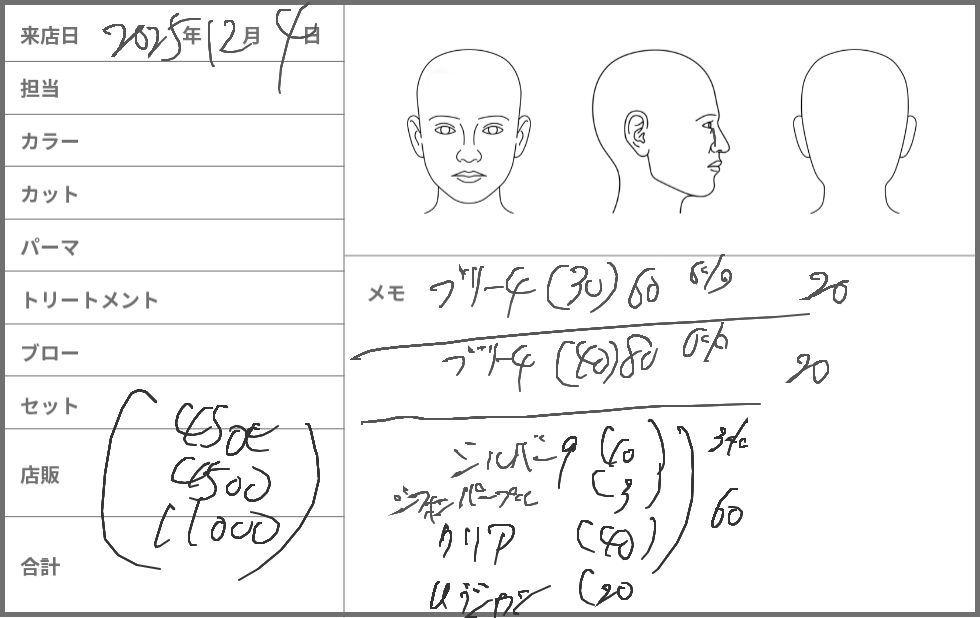 来店日 2025年12月4日
担当
カラー
カット
パーマ
トリートメント
ブロー
セット
店販
合計
4500
4500
11000
メモ ブリーチ (30) 60 6% 20
ブリーチ (40) 80 6% 20
シルバー9 (40)
パープル (3)
クリア (40)
(20
3%
60